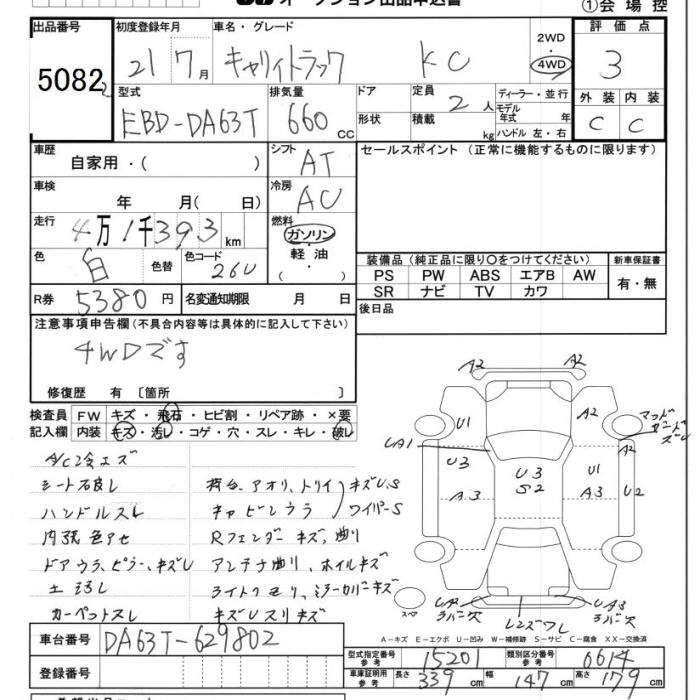 オークション出品申込書 ①会場控
出品番号 5082
初度登録年月 21 7月
車名・グレード キャリィトラック KC
2WD ・ 4WD
評価点 3
外装 C 内装 C
型式 EBD-DA63T
排気量 660 CC
ドア 形状
定員 2人 積載 kg
ディーラー・並行
モデル年式 年
ハンドル 左・右
車歴 自家用・( )
シフト AT
セールスポイント (正常に機能するものに限ります)
車検 年 月( 日)
冷房 AC
走行 4万1千393km
燃料 ガソリン・軽油・( )
色 白 色替 色コード 26U
装備品 (純正品に限り〇をつけてください) 新車保証書
PS PW ABS エアB AW 有・無
SR ナビ TV カワ
R券 5380円 名変通知期限 月 日
後日品
注意事項申告欄 (不具合内容等は具体的に記入して下さい)
4WDです
修復歴 有 〔箇所 〕
検査員記入欄
FW キズ・飛石・ヒビ割・リペア跡・×要
内装 キズ・汚レ・コゲ・穴・スレ・キレ・破レ
A/C冷エズ
シート破レ
ハンドルスレ
内張色アセ
ドアウラ、ピラー、キズU
土汚レ
カーペットスレ
荷台、アオリ、トリイ キズU,S
キャビンウラ ワイパーS
Rフェンダーキズ、曲リ
アンテナ曲リ、ホイルキズ
ライトクモリ、ミラーカバーキズ
キズUスリキズ
A2 A2
U1 A2 マッドガードズレ
UA1 A2
U3 U3 S2 U1
A3 A3 U2
スペア
UA2 ラバー欠 レンズワレ UA3 ラバー欠
A－キズ E－エクボ U－凹み W－補修跡 S－サビ C－腐食 XX－交換済
車台番号 DA63T-629802
登録番号
型式指定番号 参考 15201 類別区分番号 参考 6614
車庫証明用 参考 長さ 339cm 幅 147cm 高さ 179cm